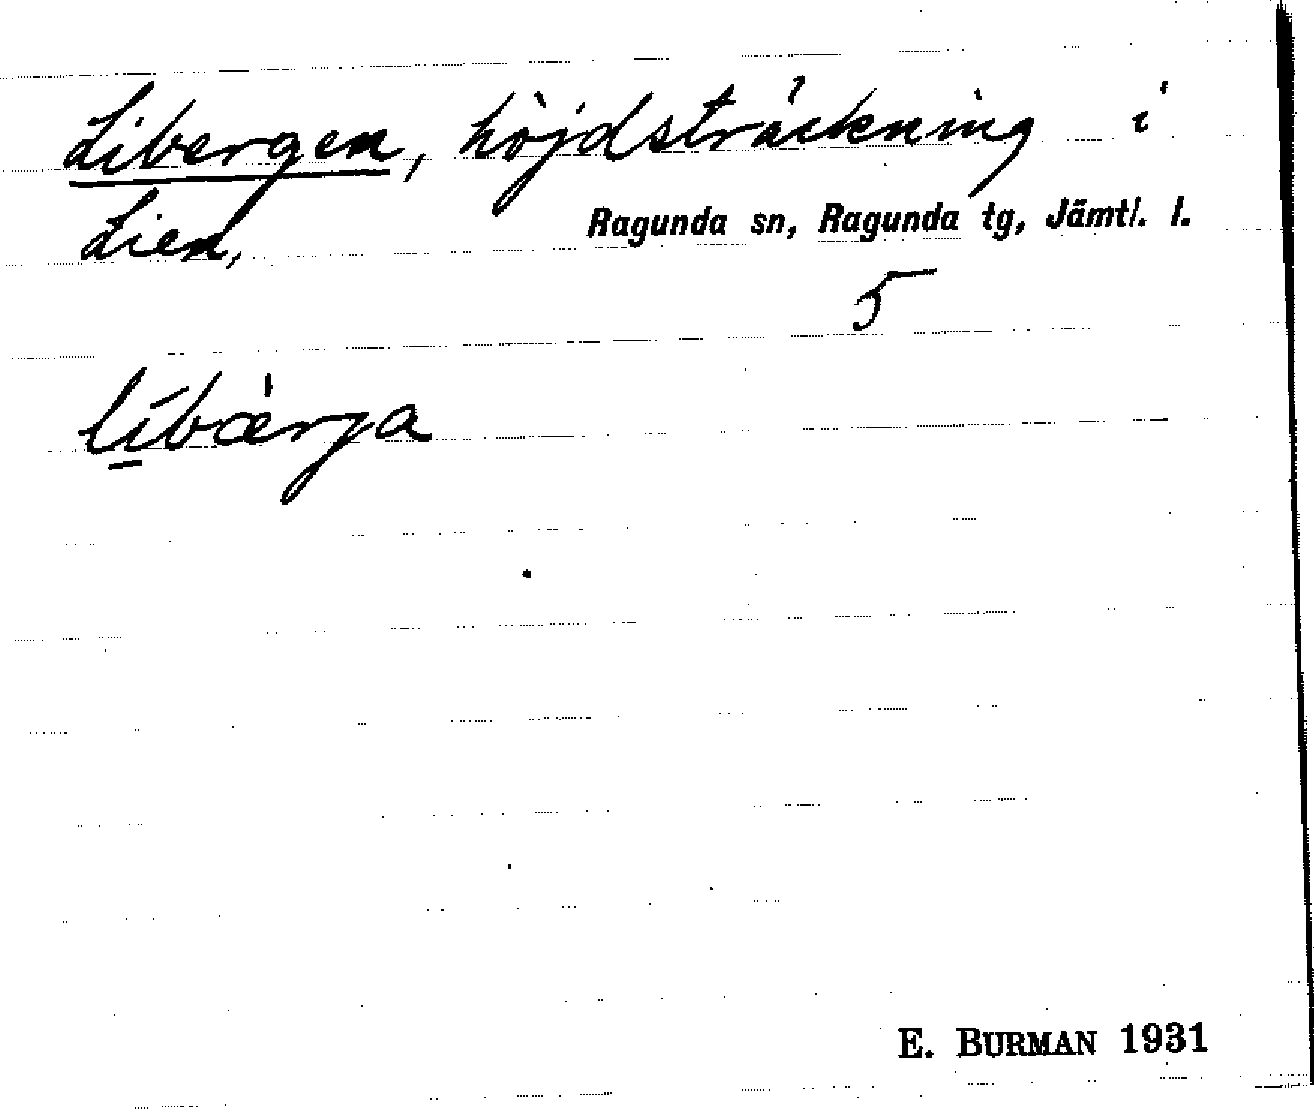 Libergen, höjdsträckning i
Lien, Ragunda sn, Ragunda tg, Jämtl. l.
5
lībærja
E. BURMAN 1931